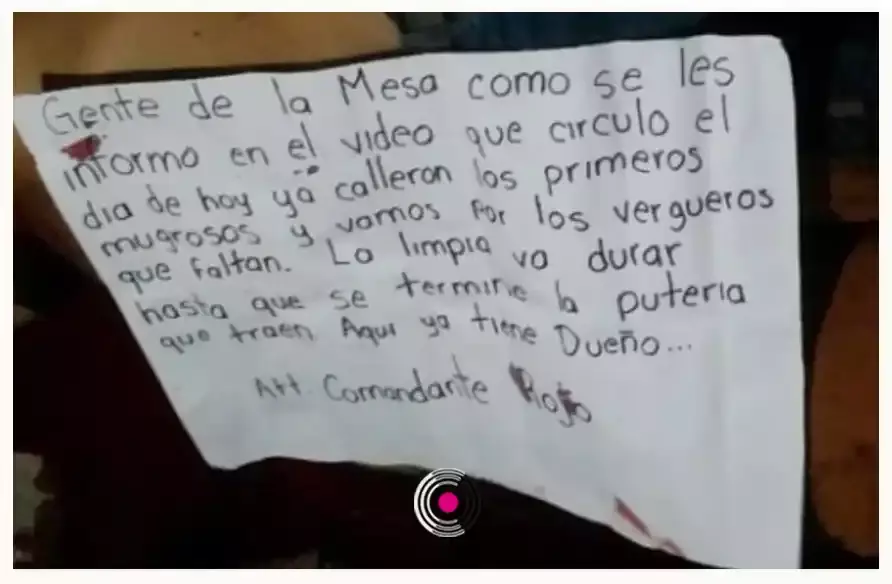 Gente de la Mesa como se les
informo en el video que circulo el
dia de hoy ya calleron los primeros
mugrosos y vamos por los vergueros
que faltan. La limpia va durar
hasta que se termine la puteria
que traen. Aqui ya tiene Dueño...
Att. Comandante Rojo